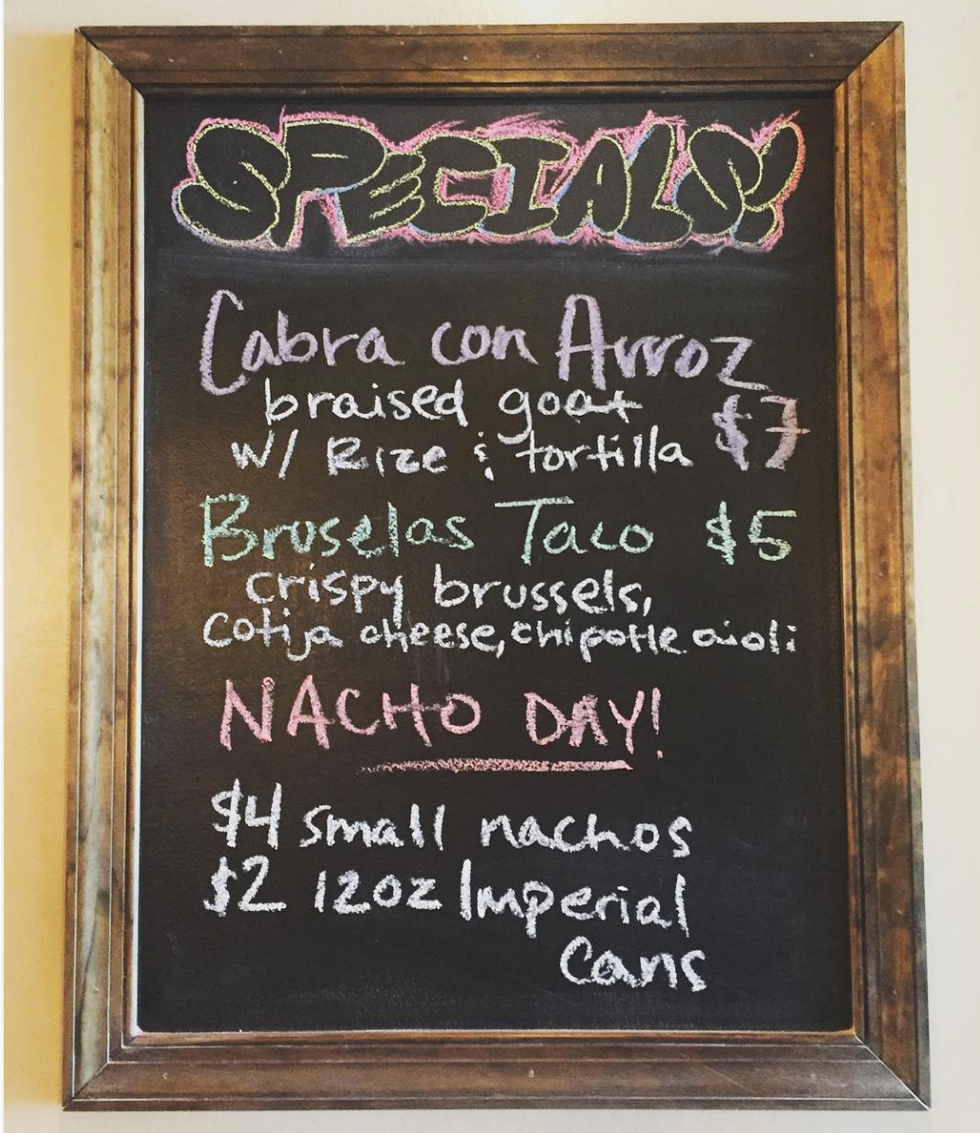 SPECIALS!
Cabra con Arroz
braised goat
w/ Rize & tortilla $7
Bruselas Taco $5
crispy brussels,
cotija cheese, chipotle aioli
NACHO DAY!
$4 small nachos
$2 12oz Imperial
Cans